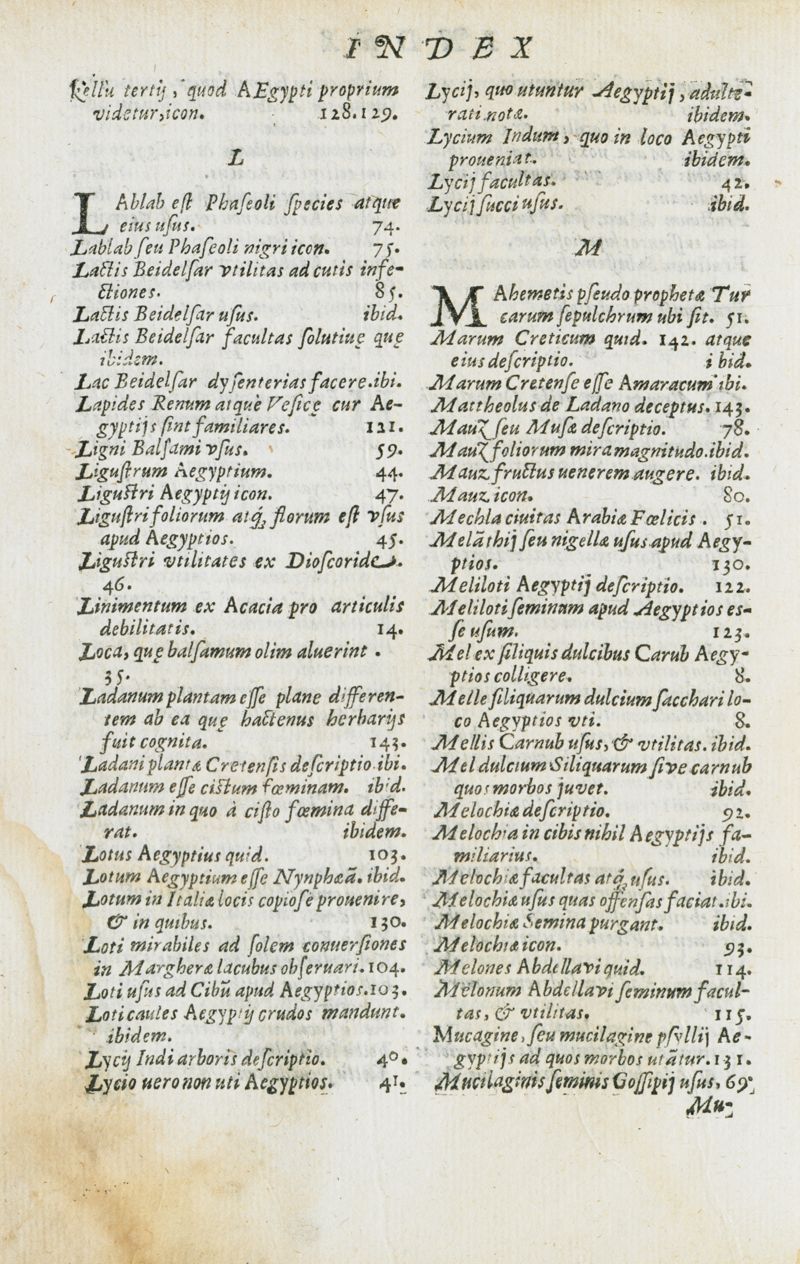 INDEX
Kellu tertij, quod AEgypti proprium
videtur, icon. 128.129.
L
LAblab eſt Phaſeoli ſpecies atque
eius uſus. 74.
Lablab ſeu Phaſeoli nigri icon. 75.
Lactis Beidelſar vtilitas ad cutis infe-
ctiones. 85.
Lactis Beidelſar uſus. ibid.
Lactis Beidelſar facultas ſolutiuę quę
ibidem.
Lac Beidelſar dyſenterias facere.ibi.
Lapides Renum atquè Veſicę cur Ae-
gyptijs ſint familiares. 121.
Ligni Balſami vſus. 59.
Liguſtrum Aegyptium. 44.
Liguſtri Aegyptij icon. 47.
Liguſtri foliorum atq́; florum eſt vſus
apud Aegyptios. 45.
Liguſtri vtilitates ex Dioſcoride.
46.
Linimentum ex Acacia pro articulis
debilitatis. 14.
Loca, quę balſamum olim aluerint .
35.
Ladanum plantam eſſe plane differen-
tem ab ea quę hactenus herbarijs
fuit cognita. 143.
Ladani plantæ Cretenſis deſcriptio.ibi.
Ladanum eſſe ciſtum fœminam. ibid.
Ladanum in quo à ciſto fœmina diffe-
rat. ibidem.
Lotus Aegyptius quid. 103.
Lotum Aegyptium eſſe Nymphæā. ibid.
Lotum in Italiæ locis copioſe prouenire,
& in quibus. 130.
Loti mirabiles ad ſolem conuerſiones
in Margheræ lacubus obſeruari. 104.
Loti uſus ad Cibū apud Aegyptios.103.
Loti caules Aegyptij crudos mandunt.
ibidem.
Lycij Indi arboris deſcriptio. 40.
Lycio uero non uti Aegyptios. 41.
Lycij, quo utuntur Aegyptij, adulte-
rati notæ. ibidem.
Lycium Indum, quo in loco Aegypti
proueniat. ibidem.
Lycij facultas. 42.
Lycij ſucci uſus. ibid.
M
MAhemetis pſeudo prophetæ Tur
carum ſepulchrum ubi ſit. 51.
Marum Creticum quid. 142. atque
eius deſcriptio. i bid.
Marum Cretenſe eſſe Amaracum ibi.
Mattheolus de Ladano deceptus. 143.
Mauz ſeu Muſæ deſcriptio. 78.
Mauz foliorum mira magnitudo.ibid.
Mauz fructus uenerem augere. ibid.
Mauz icon. 80.
Mechla ciuitas Arabiæ Fœlicis . 51.
Melāthij ſeu nigellæ uſus apud Aegy-
ptios. 130.
Meliloti Aegyptij deſcriptio. 122.
Meliloti ſeminum apud Aegyptios es-
ſe uſum. 123.
Mel ex ſiliquis dulcibus Carub Aegy-
ptios colligere. 8.
Melle ſiliquarum dulcium ſacchari lo-
co Aegyptios vti. 8.
Mellis Carnub uſus, & vtilitas. ibid.
Mel dulcium Siliquarum ſive carnub
quos morbos juvet. ibid.
Melochiæ deſcriptio. 92.
Melochia in cibis nihil Aegyptijs fa-
miliarius. ibid.
Melochiæ facultas atq́; uſus. ibid.
Melochiæ uſus quas offenſas faciat.ibi.
Melochiæ Semina purgant. ibid.
Melochiæ icon. 93.
Melones Abdellavi quid. 114.
Melonum Abdellavi ſeminum facul-
tas, & vtilitas. 115.
Mucagine, ſeu mucilagine pſyllij Ae-
gyptijs ad quos morbos utātur. 131.
Mucilaginis ſeminis Goſſipij uſus, 69.
Mu-